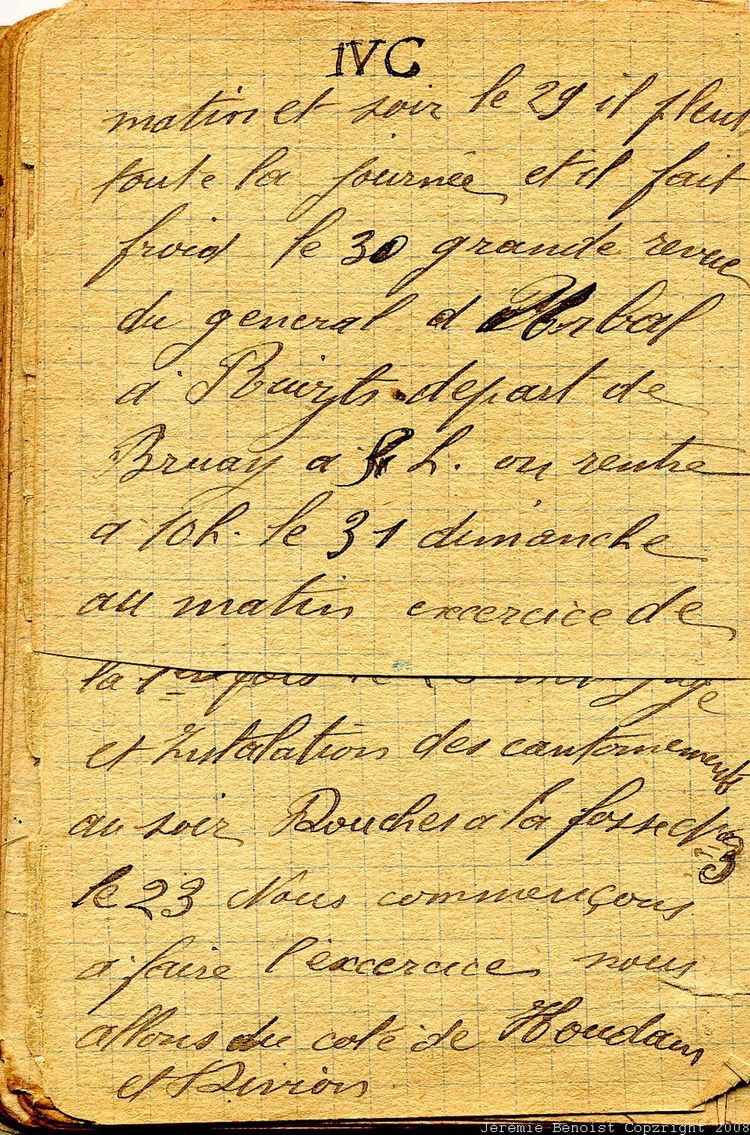 IVC
matin et soir le 29 il pleut
toute la journée et il fait
froid le 30 grande revue
du general d'Urbal
a Ruizts depart de
Bruay a h. on rentre
a 10h. le 31 dimanche
au matin excercice de
la 1ere fois le
et Instalation des cantonnements
au soir Douches a la fosse No 3
le 23 Nous commençons
a faire l'excercice nous
allons du coté de Houdain
et Divion
Jeremie Benoist Copyright 2008